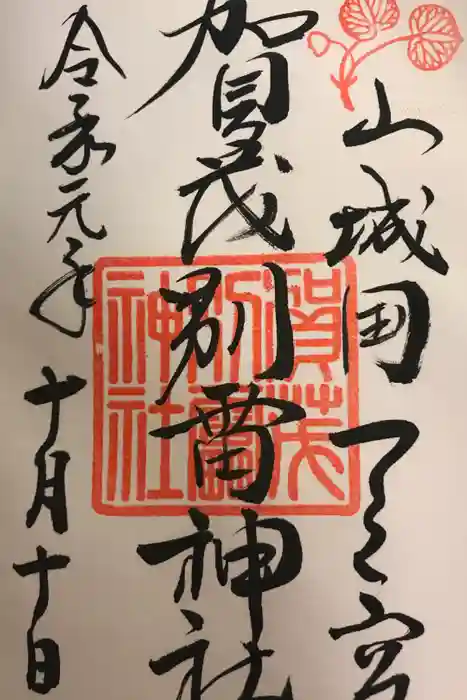 山城国一之宮
賀茂別雷神社
令和元年十月十日
賀茂
別雷
神社